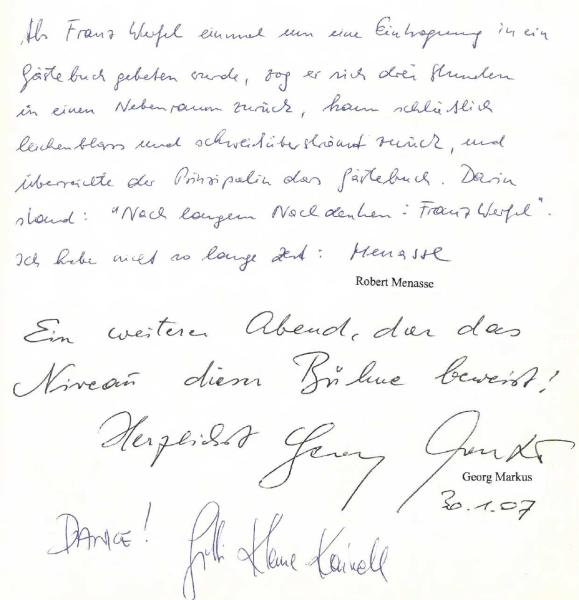 Als Franz Werfel einmal um eine Eintragung in ein
Gästebuch gebeten wurde, zog er sich drei Stunden
in einen Nebenraum zurück, kam schließlich
leichenblass und schweißüberströmt zurück, und
überreichte der Prinzipalin das Gästebuch. Darin
stand: "Nach langem Nachdenken: Franz Werfel".
Ich habe nicht so lange Zeit: Menasse
Robert Menasse
Ein weiterer Abend, der das
Niveau dieser Bühne beweist!
Herzlichst Georg Markus
Georg Markus
30.1.07
DANKE!